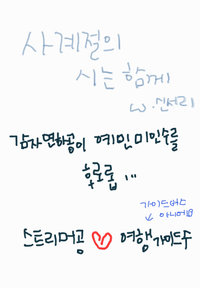 사계절의
시는 함께
w. 신서리
감자연하공이 예민미인수를
호로롭...
가이드버스
아니에요
스트리머공 ♡ 여행가이드수